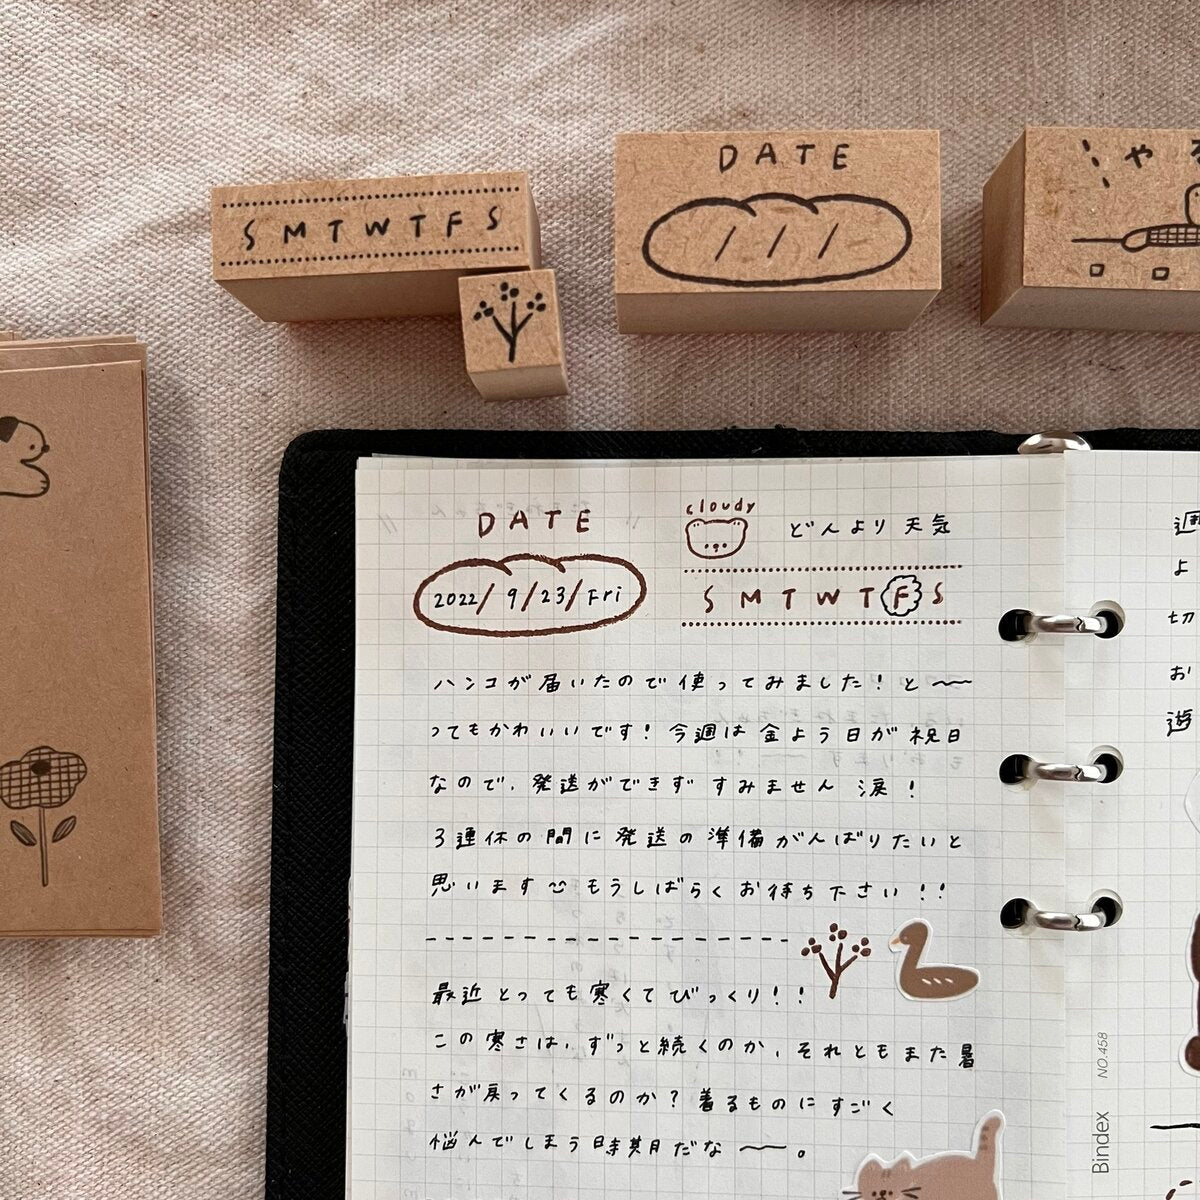 DATE
やる
S M T W T F S
DATE
cloudy
どんより天気
2022/9/23/Fri
S M T W T F S
ハンコが届いたので使ってみました！と〜
ってもかわいいです！今週は金よう日が祝日
なので、発送ができずすみません 涙！
3連休の間に発送の準備がんばりたいと
思います もうしばらくお待ち下さい！！
最近とっても寒くてびっくり！！
この寒さは、ずっと続くのか、それともまた暑
さが戻ってくるのか？着るものにすごく
悩んでしまう時期だな〜。
週
よ
切
お
遊
Bindex NO.458